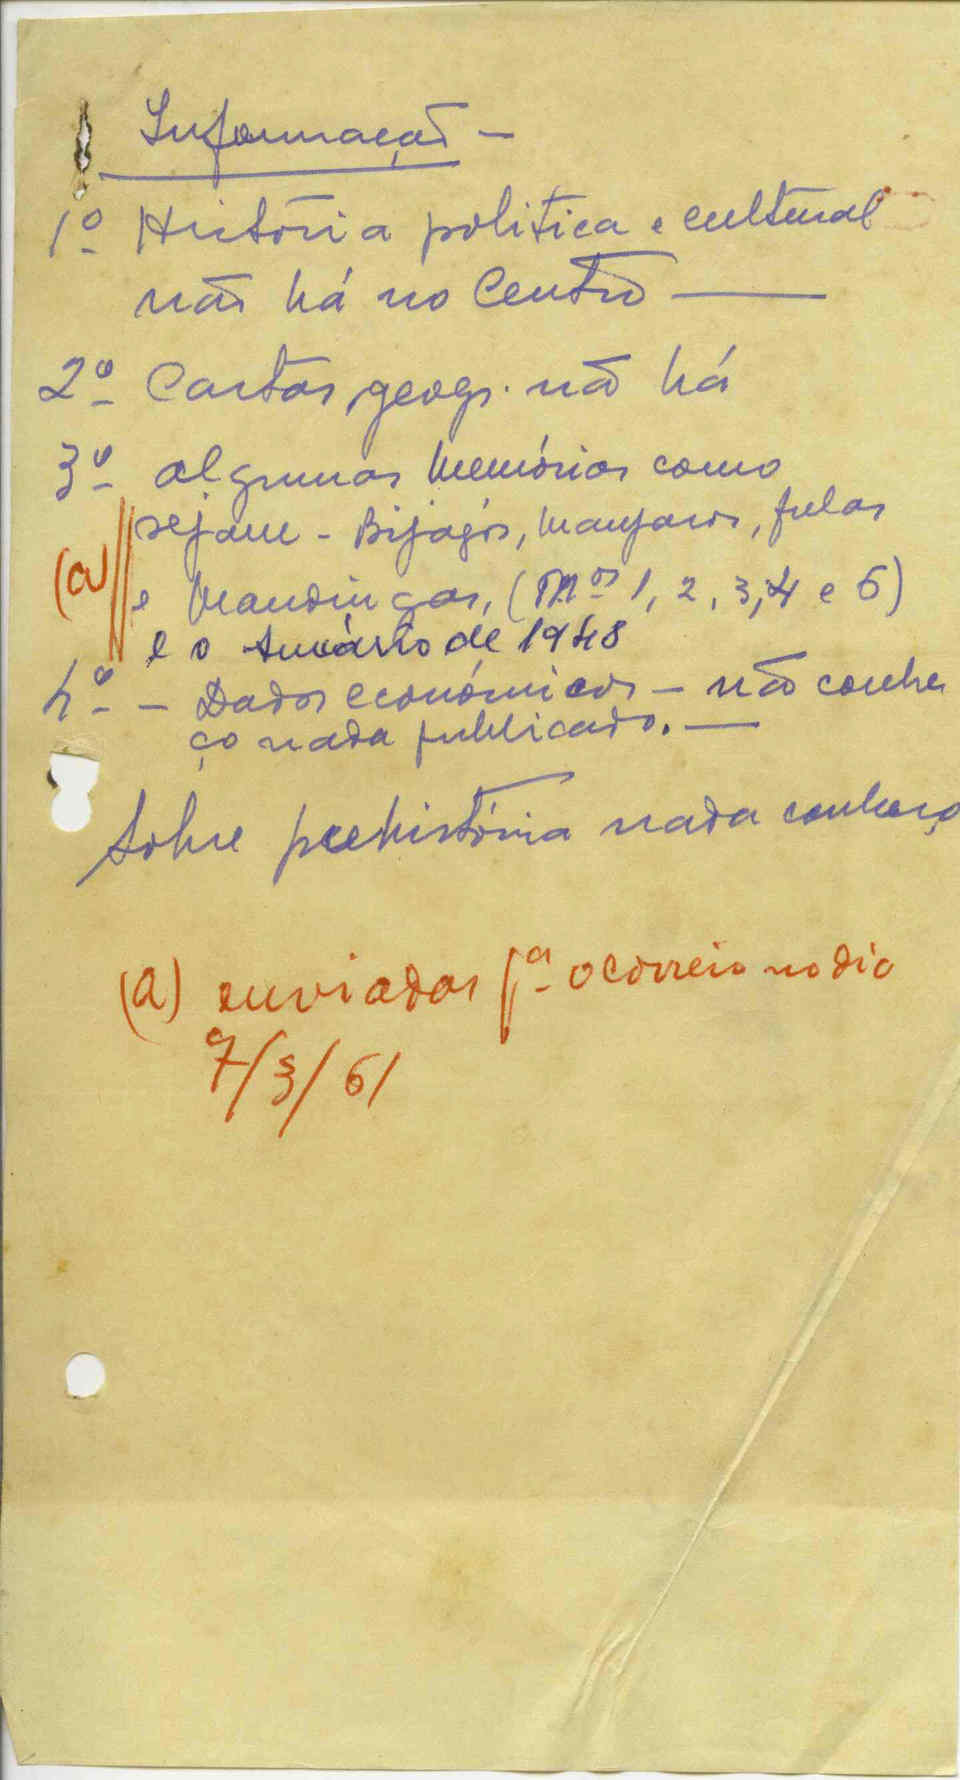 Informação -
1º História politica e cultural
não há no Centro —
2º Cartas geogr. não há
3º algumas Memórias como
sejam - Bijagós, Manjacos, fulas
(a) e Mandingas, (Nºs 1, 2, 3, 4 e 6)
e o Anuário de 1948
4º - Dados económicos - não conhe
ço nada publicado. —
Sobre prehistória nada conheço
(a) enviadas pª o correio no dia
7/3/61